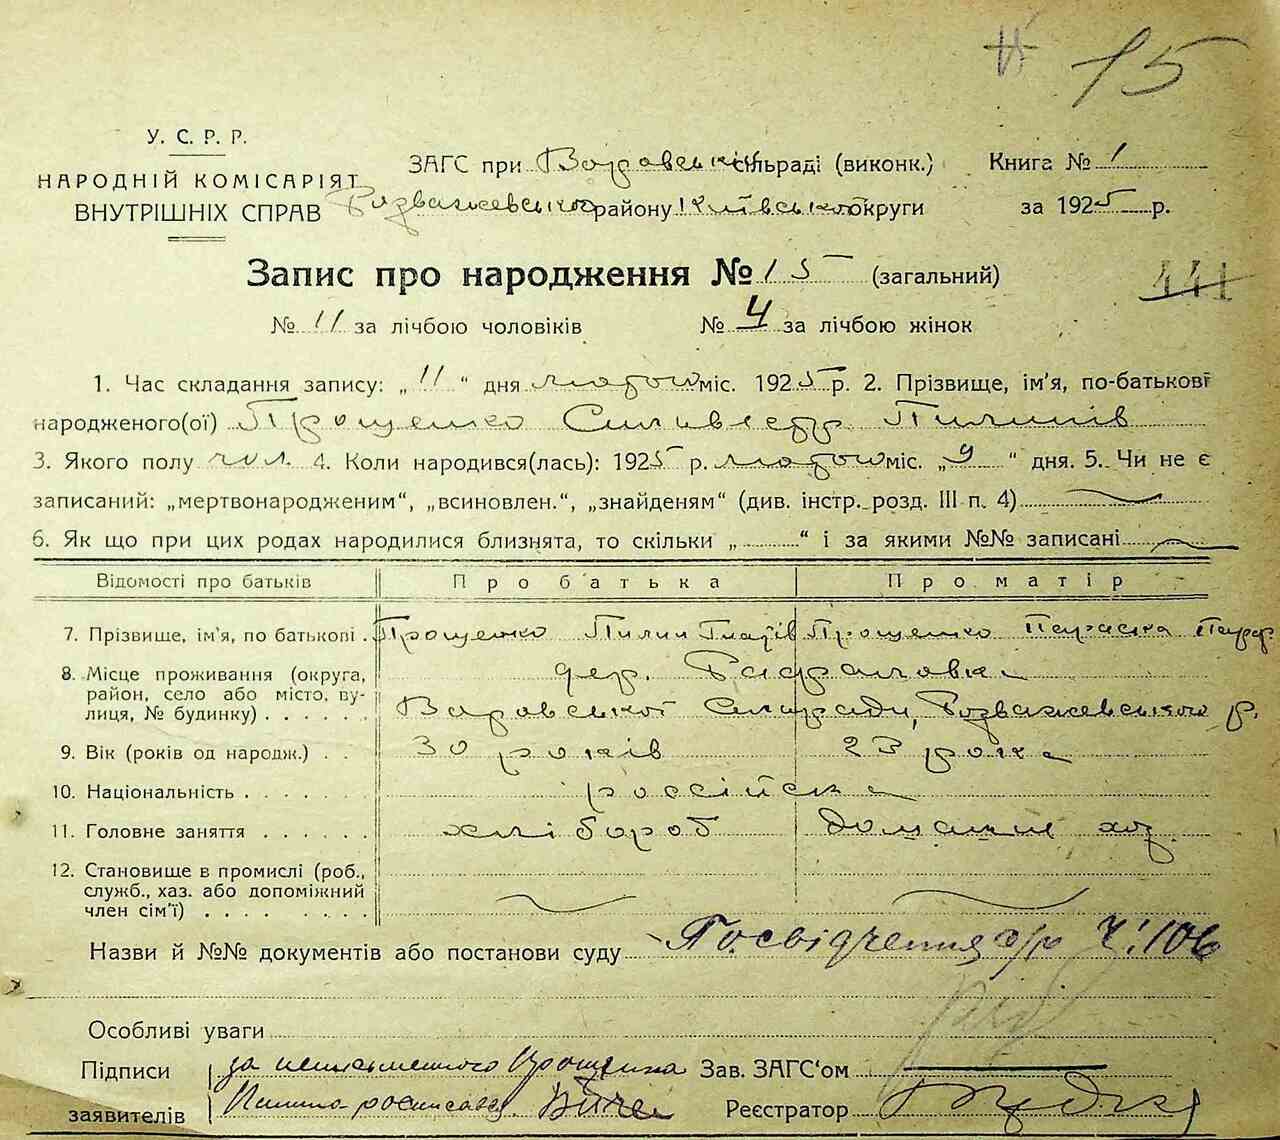 15
У. С. Р. Р.
НАРОДНІЙ КОМІСАРІЯТ
ВНУТРІШНІХ СПРАВ
ЗАГС при сільраді (виконк.) Книга № 1
Розважевського району Київської округи за 1925 р.
Запис про народження № 15 (загальний)
441
№ 11 за лічбою чоловіків № 4 за лічбою жінок
1. Час складання запису: „ 11 “ дня лютого міс. 1925 р. 2. Прізвище, ім'я, по-батькові
народженого(ої) Прощенко Сильвестр Пилипів
3. Якого полу чол. 4. Коли народився(лась): 1925 р. лютого міс. „ 9 “ дня. 5. Чи не є
записаний: „мертвонародженим“, „всиновлен.“, „знайденям“ (див. інстр. розд. III п. 4)
6. Як що при цих родах народилися близнята, то скільки „ “ і за якими №№ записані
Відомості про батьків Про батька Про матір
7. Прізвище, ім'я, по батькові . Прощенко Пилип Прощенко Параска Парф.
8. Місце проживання (округа, район, село або місто, вулиця, № будинку) . . . . . . дер.
Сільради, Розважевського р.
9. Вік (років од народж.) . . 30 років 23 роки
10. Національність . . . . . російська
11. Головне заняття . . . . . . хлібороб домашнє хоз.
12. Становище в промислі (роб.,
служб., хаз. або допоміжний
член сім'ї) . . . . . . . . .
Назви й №№ документів або постанови суду Посвідчення с/р Ч: 106
Особливі уваги
Підписи за неписьменного Прощенка Зав. ЗАГС'ом
заявителів Пилипа росписався Реєстратор